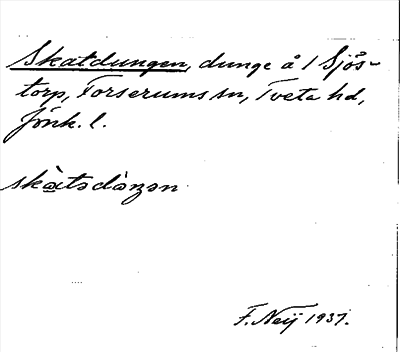 Skatdungen, dunge å 1 Sjös-
torp, Forserums sn, Tveta hd,
Jönk. l.
F. Neij 1931.